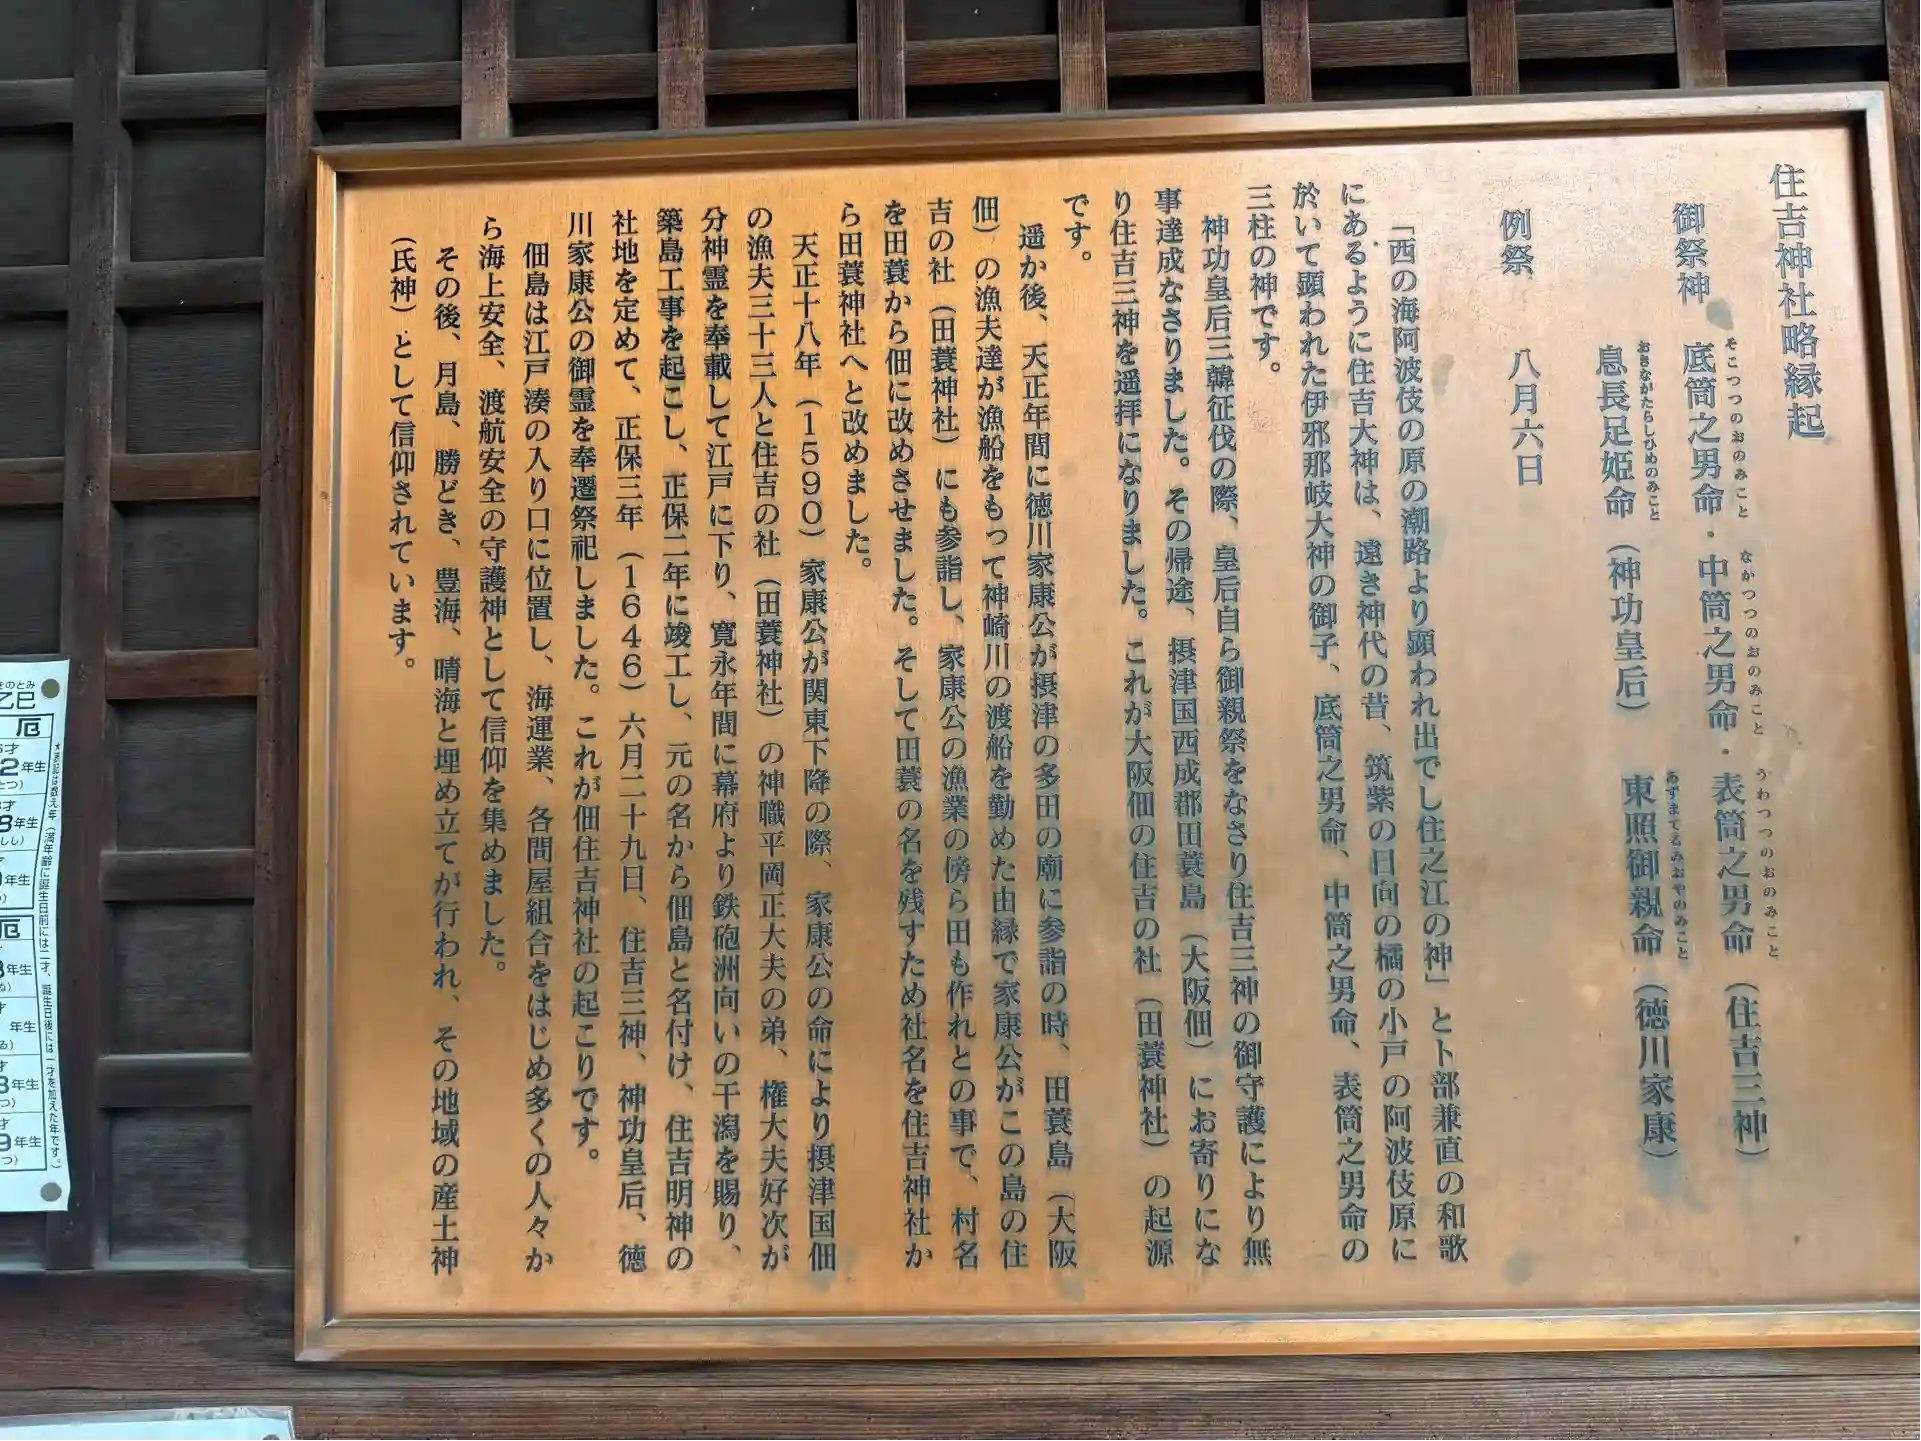 住吉神社略縁起
御祭神　底筒之男命・中筒之男命・表筒之男命（住吉三神）
そこつつのおのみこと　なかつつのおのみこと　うわつつのおのみこと
息長足姫命（神功皇后）　東照御親命（徳川家康）
おきながたらしひめのみこと　あずまてるみおやのみこと
例祭　八月六日
「西の海阿波伎の原の潮路より顕われ出でし住之江の神」と卜部兼直の和歌
にあるように住吉大神は、遠き神代の昔、筑紫の日向の橘の小戸の阿波伎原に
於いて顕われた伊邪那岐大神の御子、底筒之男命、中筒之男命、表筒之男命の
三柱の神です。
神功皇后三韓征伐の際、皇后自ら御親祭をなさり住吉三神の御守護により無
事達成なさりました。その帰途、摂津国西成郡田蓑島（大阪佃）にお寄りにな
り住吉三神を遥拝になりました。これが大阪佃の住吉の社（田蓑神社）の起源
です。
遥か後、天正年間に徳川家康公が摂津の多田の廟に参詣の時、田蓑島（大阪
佃）の漁夫達が漁船をもって神崎川の渡船を勤めた由縁で家康公がこの島の住
吉の社（田蓑神社）にも参詣し、家康公の漁業の傍ら田も作れとの事で、村名
を田蓑から佃に改めさせました。そして田蓑の名を残すため社名を住吉神社か
ら田蓑神社へと改めました。
天正十八年（１５９０）家康公が関東下降の際、家康公の命により摂津国佃
の漁夫三十三人と住吉の社（田蓑神社）の神職平岡正大夫の弟、権大夫好次が
分神霊を奉載して江戸に下り、寛永年間に幕府より鉄砲洲向いの干潟を賜り、
築島工事を起こし、正保二年に竣工し、元の名から佃島と名付け、住吉明神の
社地を定めて、正保三年（１６４６）六月二十九日、住吉三神、神功皇后、徳
川家康公の御霊を奉遷祭祀しました。これが佃住吉神社の起こりです。
佃島は江戸湊の入り口に位置し、海運業、各問屋組合をはじめ多くの人々か
ら海上安全、渡航安全の守護神として信仰を集めました。
その後、月島、勝どき、豊海、晴海と埋め立てが行われ、その地域の産土神
（氏神）として信仰されています。
きのとみ
乙巳
厄
年生
年生
年生
厄
年生
年生
年生
年生